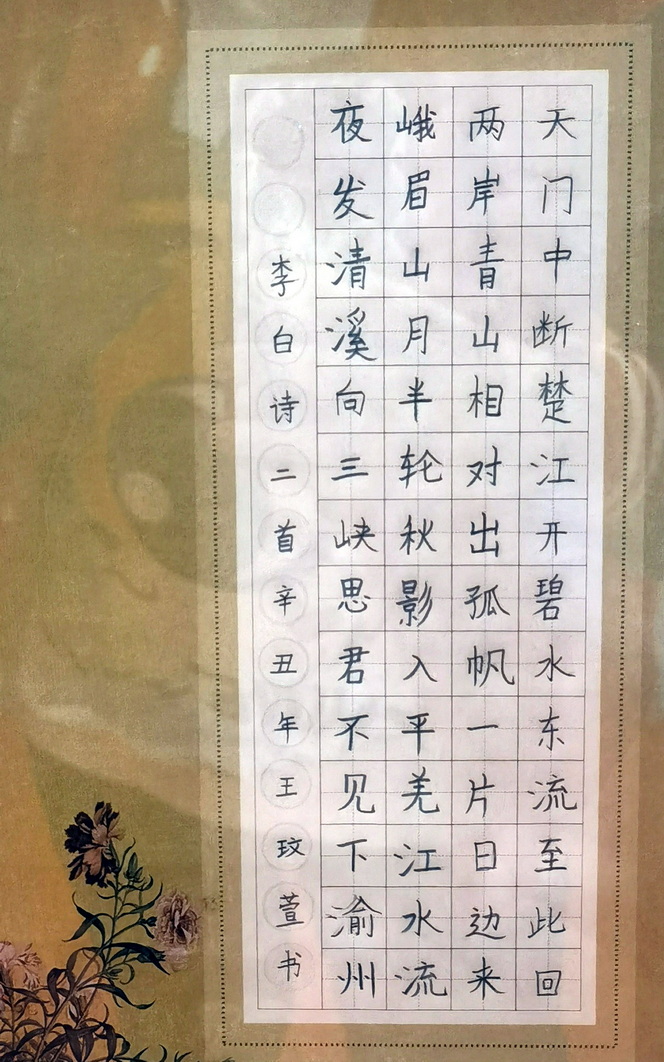 天门中断楚江开碧水东流至此回
两岸青山相对出孤帆一片日边来
峨眉山月半轮秋影入平羌江水流
夜发清溪向三峡思君不见下渝州
李白诗二首辛丑年王玟萱书